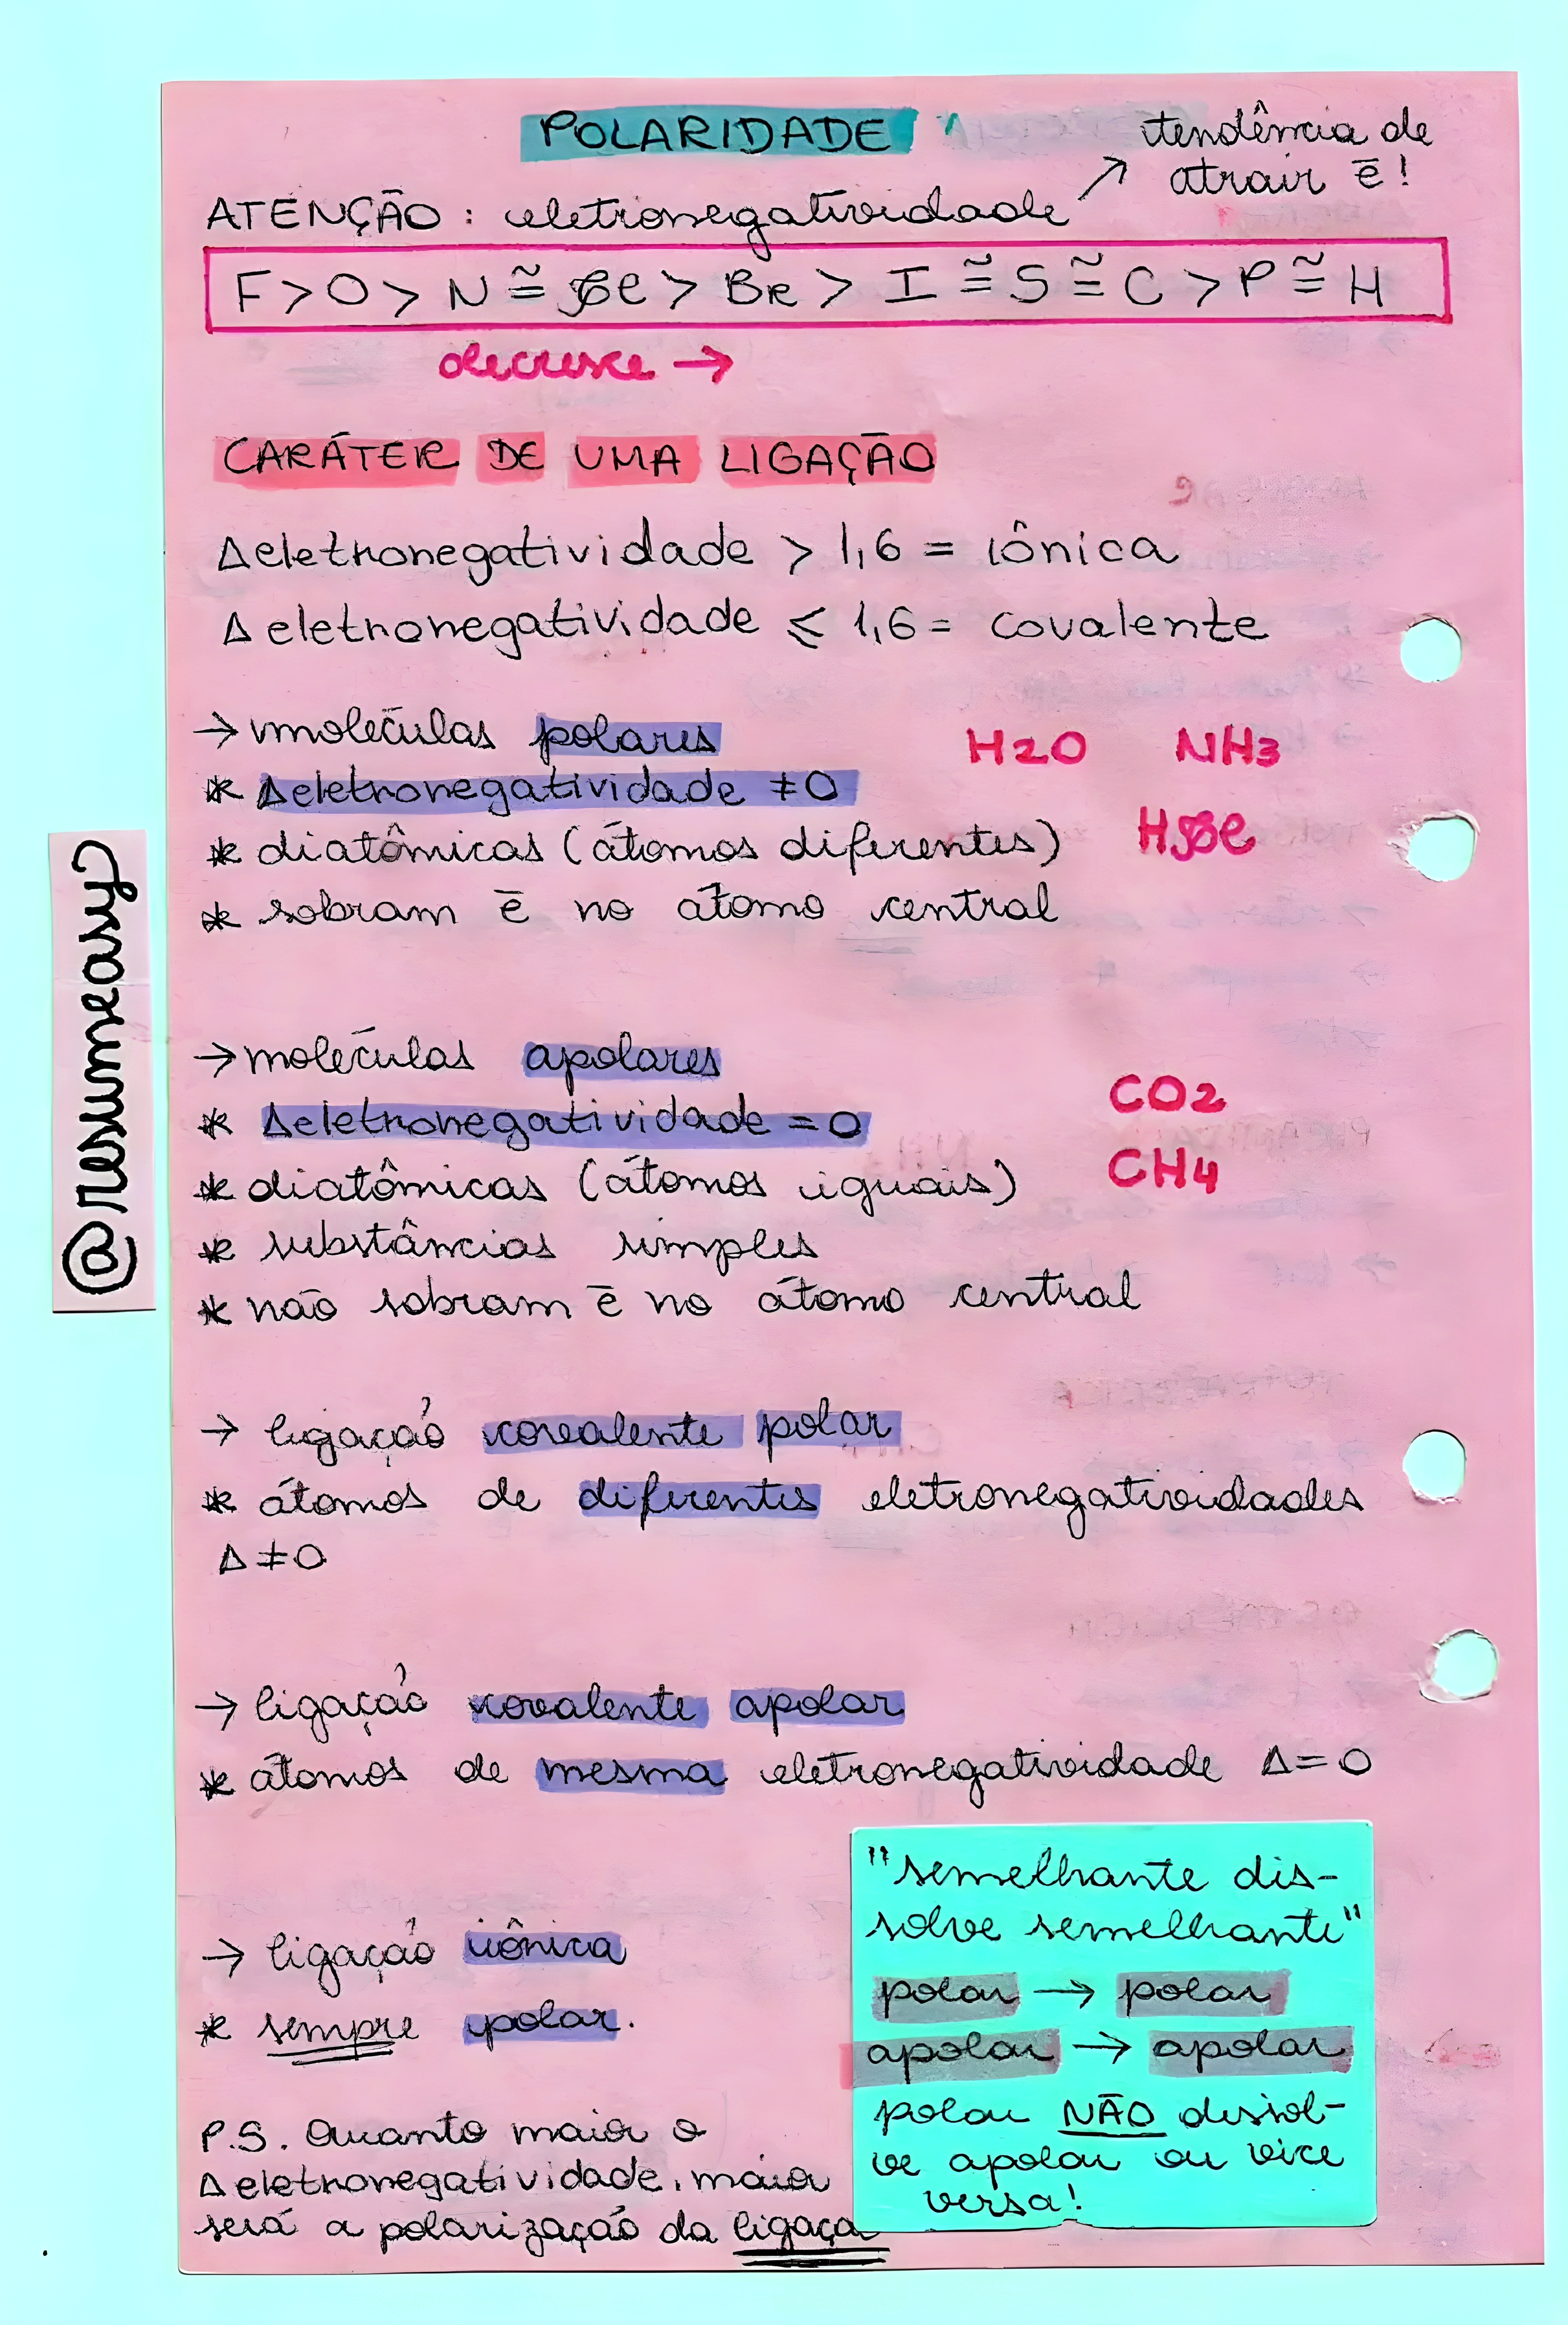 POLARIDADE
tendência de
atrair ē!
ATENÇÃO: eletronegatividade ↗
F > O > N ≅ Cl > Br > I ≅ S ≅ C > P ≅ H
decresce →
CARÁTER DE UMA LIGAÇÃO
Δeletronegatividade > 1,6 = iônica
Δeletronegatividade ⩽ 1,6 = covalente
→ moléculas polares
H2O NH3
* Δeletronegatividade ≠ 0
* diatômicas (átomos diferentes)
HCl
* sobram ē no átomo central
@resumeasy
→ moléculas apolares
CO2
* Δeletronegatividade = 0
CH4
* diatômicas (átomos iguais)
* substâncias simples
* não sobram ē no átomo central
→ ligação covalente polar
* átomos de diferentes eletronegatividades
Δ ≠ 0
→ ligação covalente apolar
* átomos de mesma eletronegatividade Δ = 0
→ ligação iônica
* sempre polar.
P.S. Quanto maior o
Δeletronegatividade, maior
será a polarização da ligaça
"semelhante dis-
solve semelhante"
polar → polar
apolar → apolar
polar NÃO dissol-
ve apolar ou vice
versa!